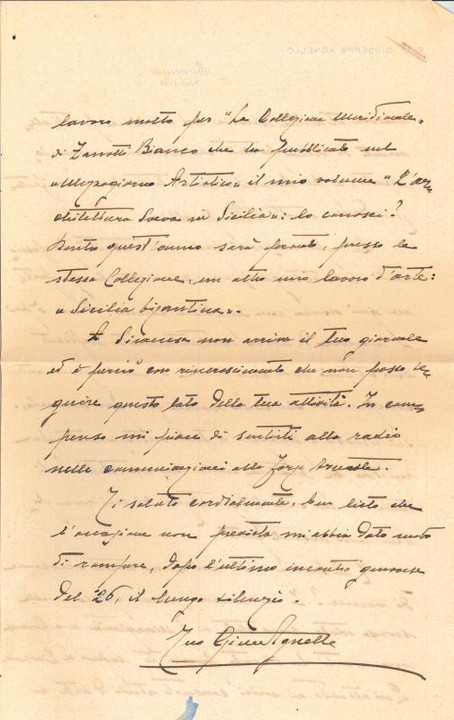 lavoro molto per "La Collezione Meridionale"
di Zanotti Bianco che ha pubblicato nel
"Mezzogiorno Artistico" il mio volume "L'ar-
chitettura Sveva in Sicilia": lo conosci?
Dentro quest'anno sarà pronto, presso la
stessa Collezione, un altro mio lavoro d'arte:
"Sicilia bizantina".
A Siracusa non arriva il tuo giornale
ed è perciò con rincrescimento che non posso se-
guire questo lato della tua attività. In com-
penso mi piace di sentirti alla radio
nelle comunicazioni alle Forze Armate.
Ti saluto cordialmente, ben lieto che
l'occasione non prevista mi abbia dato modo
di rompere, dopo l'ultimo incontro genovese
del '26, il lungo silenzio.
Tuo Gius. Agnello
GIUSEPPE AGNELLO
Siracusa